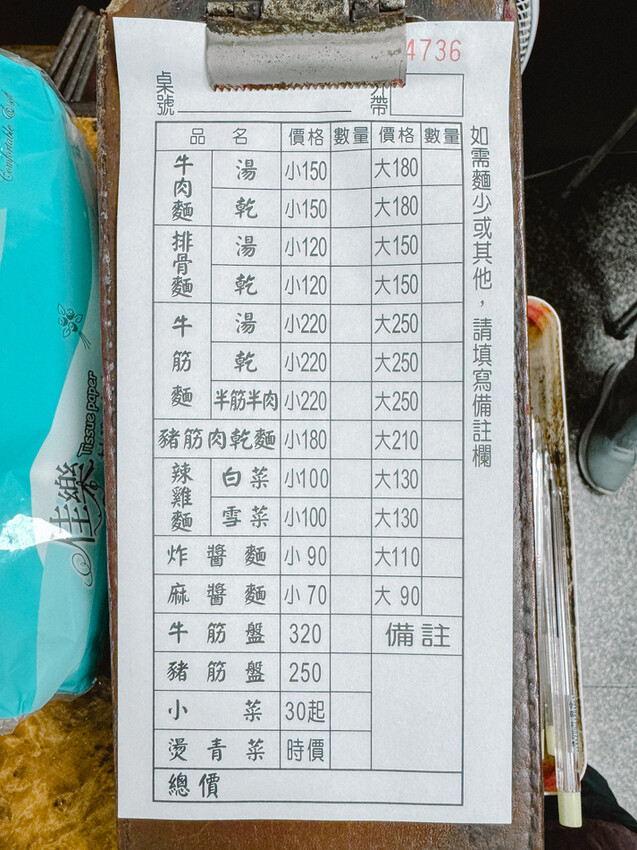 4736
桌號
帶
品名 價格 數量 價格 數量
牛肉麵 湯 小150 大180
乾 小150 大180
排骨麵 湯 小120 大150
乾 小120 大150
牛筋麵 湯 小220 大250
乾 小220 大250
半筋半肉 小220 大250
豬筋肉乾麵 小180 大210
辣雞麵 白菜 小100 大130
雪菜 小100 大130
炸醬麵 小90 大110
麻醬麵 小70 大90
牛筋盤 320 備註
豬筋盤 250
小菜 30起
燙青菜 時價
總價
如需麵少或其他，請填寫備註欄
Comfortable
佳樂
Tissue paper